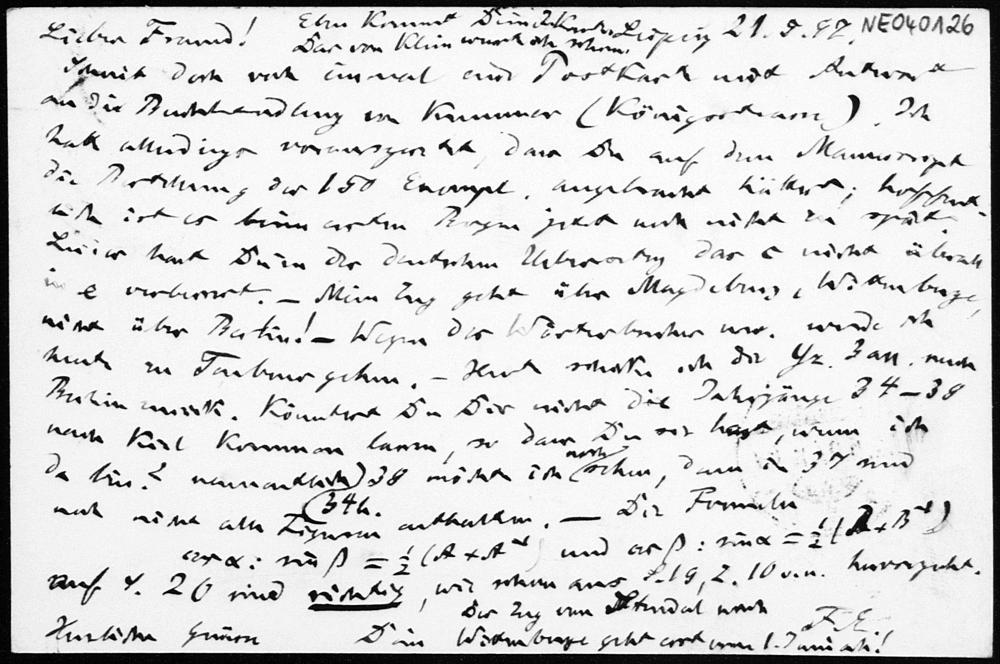 Eben kommt Deine Karte. Leipzig 21.5.97. NE040126
Lieber Freund! Das von Klein wurde ich schon
doch noch einmal eine Postkarte mit Antwort
an die Buchhandlung von Krummer (Königsstrasse). Ich
hatte allerdings vorausgesetzt, dass Du auf dem Manuscript
die Bestellung der 150 Exempl. angebracht hättest; hoffent-
lich ist es beim ersten Bogen jetzt noch nicht zu spät.
hast Du in der deutschen das c nicht überall
in e verbessert. – Mein Zug geht über Magdeburg, Wittenberge,
nicht über Berlin! – Wegen des Wörterbuches werde ich
heute zu Teubner gehen. – Heute schicke ich die nach
Berlin zurück. Könntest Du Dir nicht die Jahrgänge 34–38
nach Kiel kommen lassen, so dass Du sie hast, wenn ich
da bin? namentlich 38 möchte ich noch sehen, da in 37 und
34b.
noch nicht alle Figuren enthalten. – Die Formeln
cos α : sin β = ½ (A + A⁻¹) und cos β : sin α = ½ (B + B⁻¹)
auf S. 20 sind richtig, wie schon aus S. 19, Z. 10 v.u. hervorgeht.
Der Zug von Stendal nach
Herzliche Grüsse Dein Wittenberge geht erst vom 1. Juni ab! F. E.